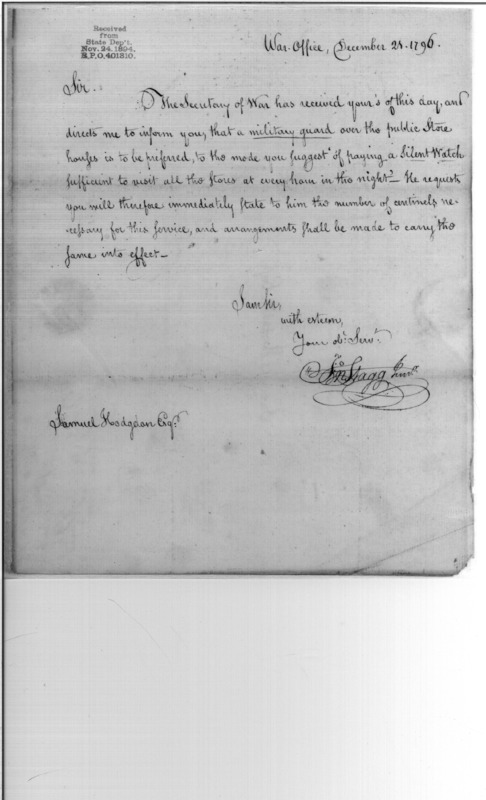 Received
from
State Dep't.
Nov. 24. 1894.
R.P.O. 401310.
War Office, December 28. 1796.
Sir.
The Secretary of War has received your's of this day, and
directs me to inform you, that a military guard over the public Store
houses is to be preferred, to the mode you suggest of paying a Silent Watch
sufficient to visit all the Stores at every hour in the night — He requests
you will therefore immediately state to him the number of centinels ne-
cessary for this Service, and arrangements shall be made to carry the
same into effect —
I am Sir,
with esteem,
Your obt. Servt.
Jno Stagg Junr.
Samuel Hodgdon Esqr.